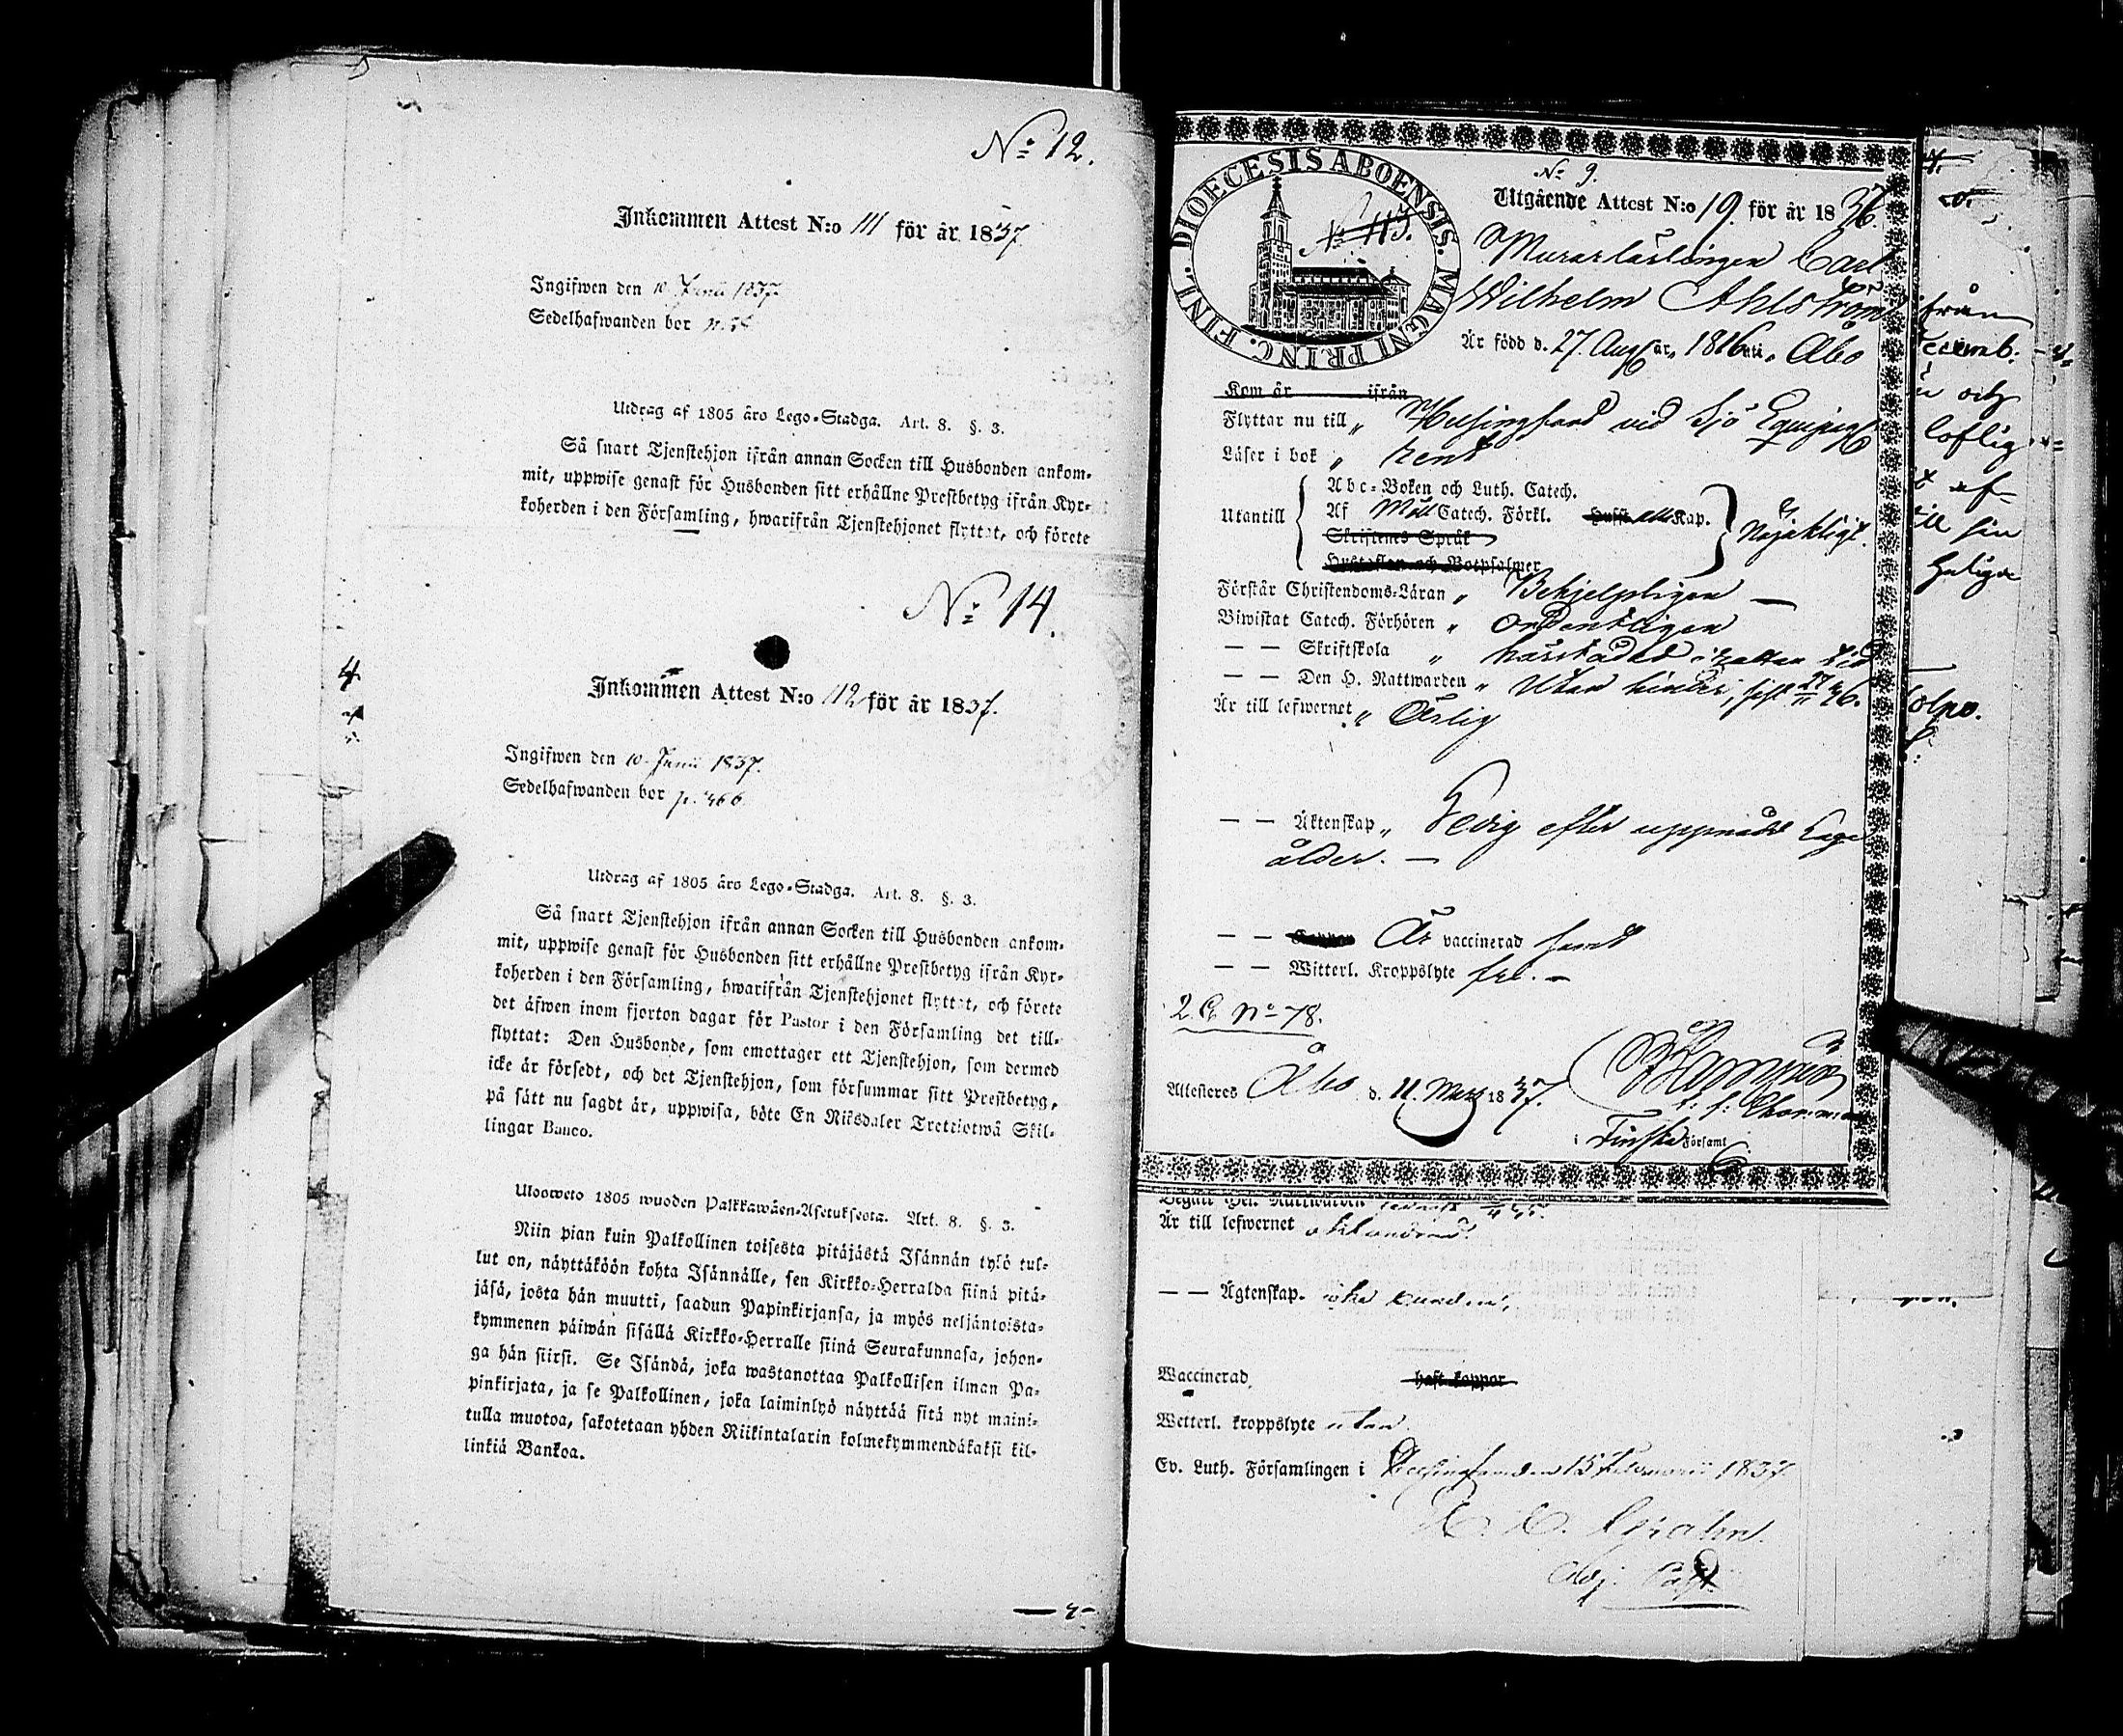 No 12.
Inkommen Attest N:o 111 för år 1837
Ingifwen den 10 Junii 1837.
Sedelhafwanden bor p.
Utdrag af 1805 års Lego-Stadga. Art. 8. §. 3.
Så snart Tjenstehjon ifrån annan Socken till Husbonden ankom-
mit, uppwise genast för Husbonden sitt erhållne Prestbetyg ifrån Kyr-
koherden i den Församling, hwarifrån Tjenstehjonet flyttat, och förete
No 14.
4
Inkommen Attest N:o 112 för år 1837.
Ingifwen den 10 Junii 1837.
Sedelhafwanden bor p. 466
Utdrag af 1805 års Lego-Stadga. Art. 8. §. 3.
Så snart Tjenstehjon ifrån annan Socken till Husbonden ankom-
mit, uppwise genast för Husbonden sitt erhållne Prestbetyg ifrån Kyr-
koherden i den Församling, hwarifrån Tjenstehjonet flyttat, och förete
det äfwen inom fjorton dagar för Pastor i den Församling det till-
flyttat: Den Husbonde, som emottager ett Tjenstehjon, som dermed
icke är försedt, och det Tjenstehjon, som försummar sitt Prestbetyg,
på sätt nu sagdt är, uppwisa, böte En Riksdaler Trettiotwå Skil-
lingar Banco.
Uloosweto 1805 wuoden Palkkawäen-Asetuksesta. Art. 8. §. 3.
Niin pian kuin Palkollinen toisesta pitäjästä Isännän tykö tul-
lut on, näyttäköön kohta Isännälle, sen Kirkko-Herralda siinä pitä-
jäsä, josta hän muutti, saadun Papinkirjansa, ja myös neljäntoista-
kymmenen päiwän sisällä Kirkko-Herralle siinä Seurakunnasa, johon-
ga hän siirsi. Se Isändä, joka wastanottaa Palkollisen ilman Pa-
pinkirjata, ja se Palkollinen, joka laiminlyö näyttää sitä nyt maini-
tulla muotoa, sakotetaan yhden Riikintalarin kolmekymmendäkaksi kil-
linkiä Bankoa.
DIOECESIS ABOENSIS. MAGNI PRINC. FINL.
No 113.
No 9.
Utgående Attest N:o 19. för år 1836.
Murarlärlingen Carl
Wilhelm Ahlström
Är född d. 27. Aug. år 1816 uti Åbo
Kom år ifrån
Flyttar nu till Helsingfors vid Sjö Equipaget
Läser i bok rent
Abc-Boken och Luth. Catech.
Utantill
Af Catech. Förkl. Kap.
Nöjaktligt.
Skriftenes Språk
Hustaflan och Botpsalmer
Förstår Christendoms-Läran Behjelpligen
Biwistat Catech. Förhören ordentligen
— — Skriftskola i rättan tid
— — Den H. Nattwarden Utan hinder, sist 27/11 36.
Är till lefwernet Ärlig
— — Äktenskap Ledig efter uppnådd Laga
ålder. —
— — Är vaccinerad samt
— — Witterl. Kroppslyte fri. —
2. C. No 78.
Attesteres Åbo d. 11. Mars 1837.
i Finska Församl.
ifrån
Decemb.
och
loflig
af
till sin
Helige
Är till lefwernet
— — Ägtenskap.
Waccinerad,
haft koppor
Wetterl. kroppslyte utan.
Ev. Luth. Församlingen i Helsingfors den 15 Februarii 1837.
Adj. Past.